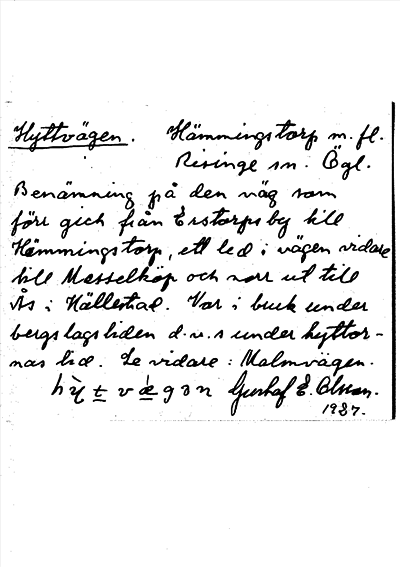 Hyttvägen. Hämmingstorp m. fl.
Risinge sn. Ögl.
Benämning på den väg som
förr gick från Erstorps by till
Hämmingstorp, ett led i vägen vidare
till Messelköp och norr ut till
Ås i Hällestad. Var i bruk under
bergslagstiden d.v.s under hyttor-
nas tid. Se vidare: Malmvägen.
hỳt væ̀gən Gustaf E. Olsson.
1937.